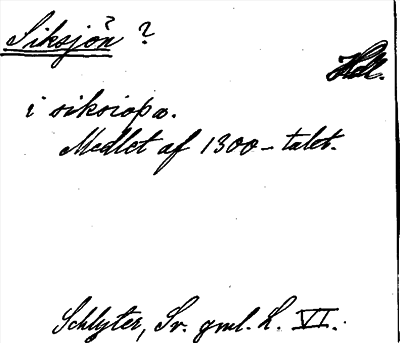 Siksjön ?
Hll.
i siksiopæ.
Medlet af 1300-talet.
Schlyter, Sv. gml. L. VI.